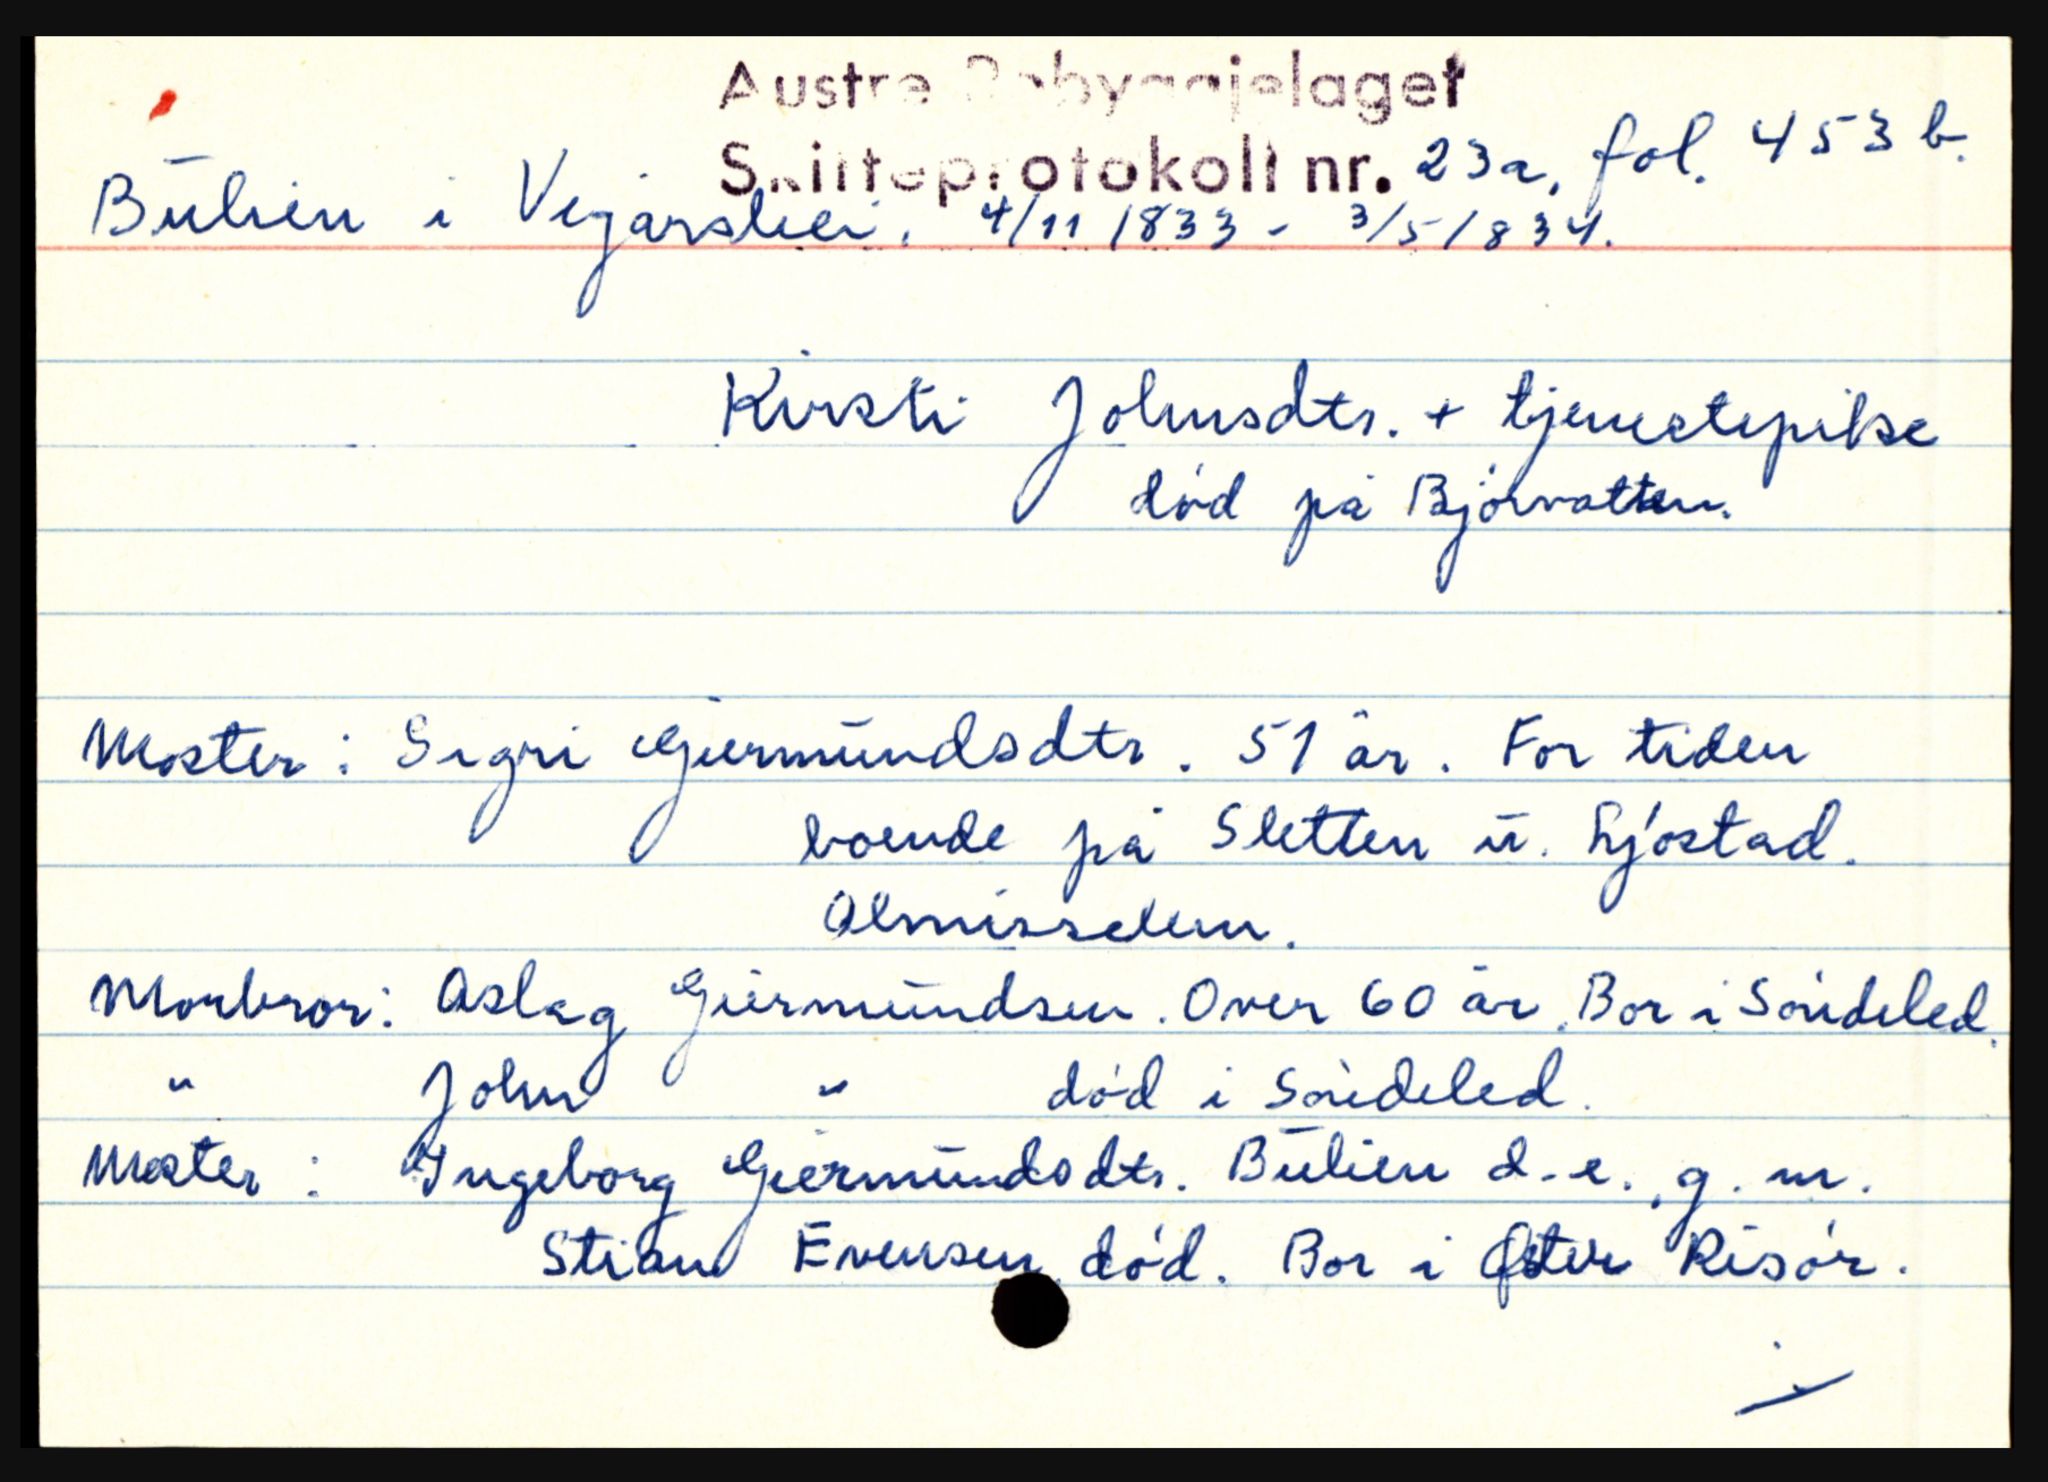 Austre Robyggjelaget
Skifteprotokoll nr. 23a, fol. 453 b.
Bulien i Vegårshei, 4/11 1833 - 3/5 1834.
Kirsti Johnsdtr. + tjenestepike
död på Björvatten.
Moster: Sigri Gjermundsdtr. 51 år. For tiden
boende på Sletten u. Ljöstad.
Almisselem.
Morbror: Aslag Giermundsen. Over 60 år. Bor i Söndeled.
" John " död i Söndeled.
Moster: Ingeborg Giermundsdtr. Bulien d.e., g.m.
Stian Evensen, död. Bor i Öster Risör.